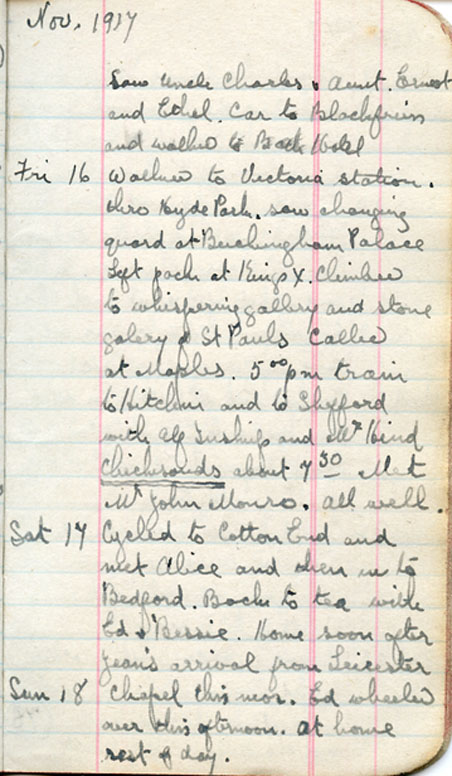 Nov. 1917
Saw Uncle Charles & Aunt. Ernest
and Ethel. Car to Blackfriars
and walked to Bath Hotel
Fri 16 Walked to Victoria station.
thro Hyde Park. saw changing
guard at Buckingham Palace
Left pack at Kings X. Climbed
to whispering gallery and stone
galery of St Pauls Called
at Maples. 5 00 pm train
to Hitchin and to Shefford
with Alf and Mr Hind
Chicksands about 7 30 Met
Mr John Monro. all well.
Sat 17 Cycled to Cotton End and
met Alice and then in to
Bedford. Back to tea with
Ed & Bessie. Home soon after
Jean's arrival from Leicester
Sun 18 Chapel this mor. Ed wheeled
over this afternoon. At home
rest of day.